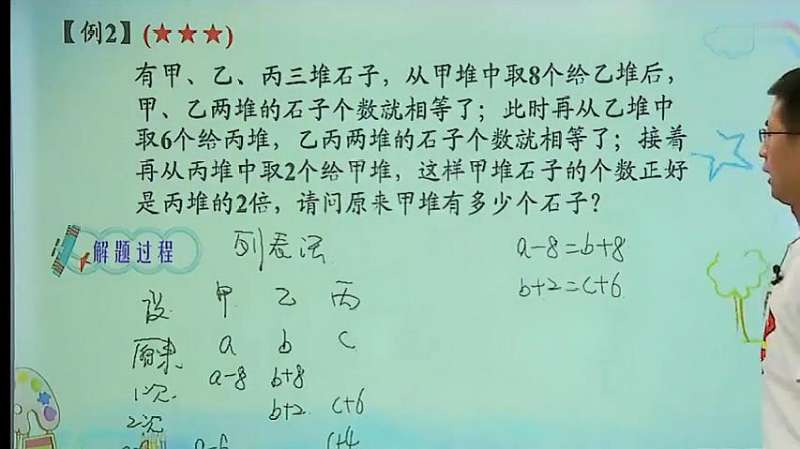 【例2】(★★★)
有甲、乙、丙三堆石子，从甲堆中取8个给乙堆后，
甲、乙两堆的石子个数就相等了；此时再从乙堆中
取6个给丙堆，乙丙两堆的石子个数就相等了；接着
再从丙堆中取2个给甲堆，这样甲堆石子的个数正好
是丙堆的2倍，请问原来甲堆有多少个石子？
解题过程 列表法
a-8=b+8
b+2=c+6
设 甲 乙 丙
原来 a b c
1次 a-8 b+8
2次 b+2 c+6
a-6 c+4